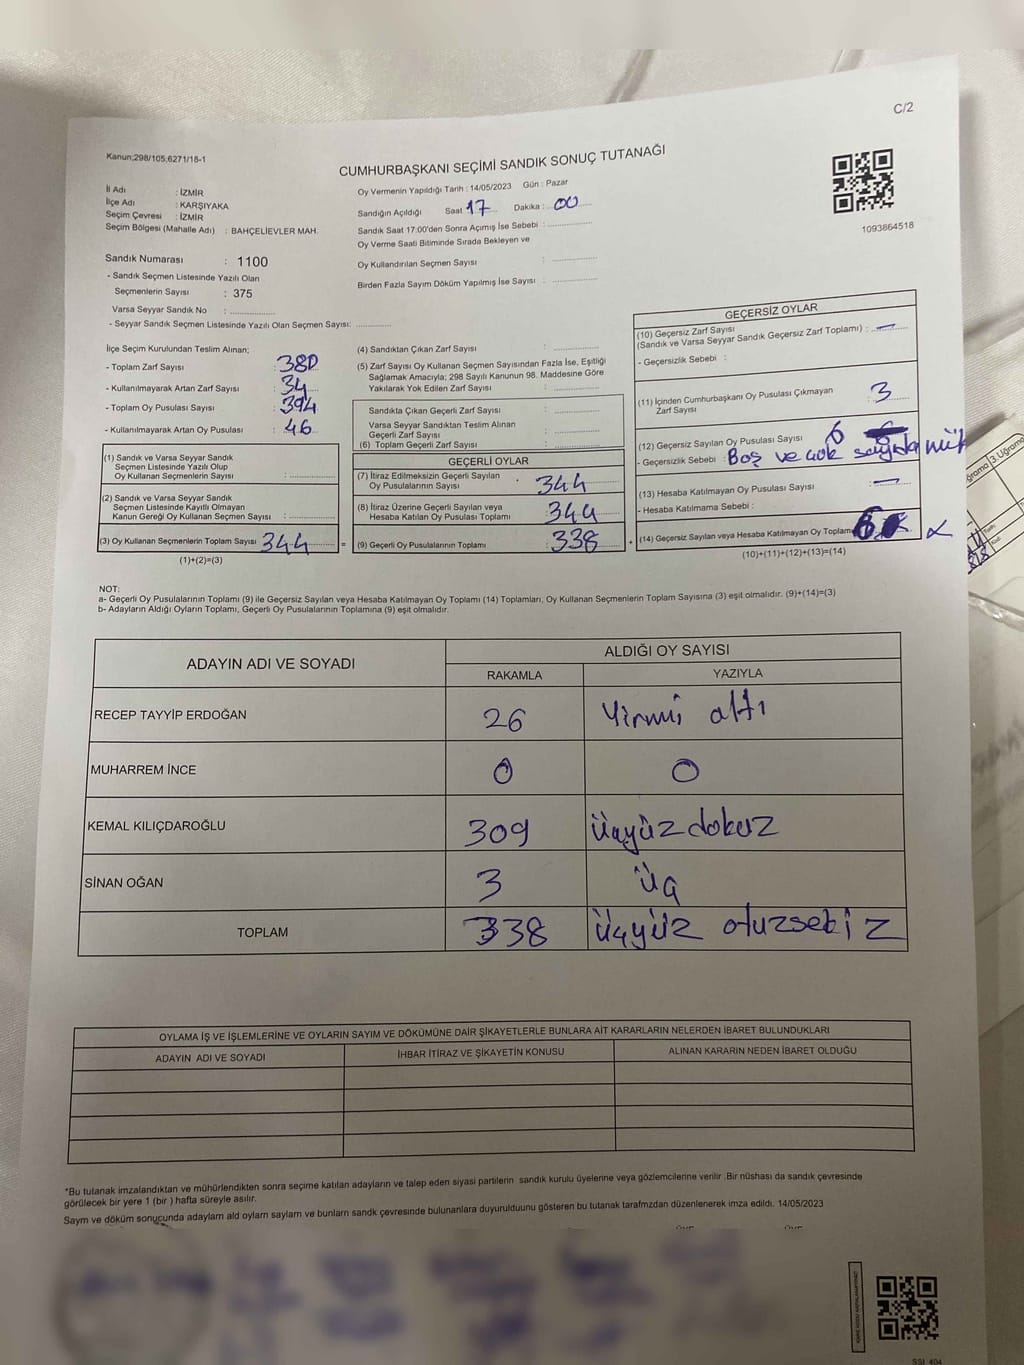 C/2
Kanun;298/105;6271/18-1
CUMHURBAŞKANI SEÇİMİ SANDIK SONUÇ TUTANAĞI
İl Adı : İZMİR
İlçe Adı : KARŞIYAKA
Seçim Çevresi : İZMİR
Seçim Bölgesi (Mahalle Adı) : BAHÇELİEVLER MAH.
Oy Vermenin Yapıldığı Tarih : 14/05/2023 Gün : Pazar
Sandığın Açıldığı Saat 17 Dakika : 00
Sandık Saat 17:00'den Sonra Açımış İse Sebebi :
Oy Verme Saati Bitiminde Sırada Bekleyen ve
Oy Kullandırılan Seçmen Sayısı :
Birden Fazla Sayım Döküm Yapılmış İse Sayısı :
1093864518
Sandık Numarası : 1100
- Sandık Seçmen Listesinde Yazılı Olan
Seçmenlerin Sayısı : 375
Varsa Seyyar Sandık No :
- Seyyar Sandık Seçmen Listesinde Yazılı Olan Seçmen Sayısı:
İlçe Seçim Kurulundan Teslim Alınan;
- Toplam Zarf Sayısı : 380
- Kullanılmayarak Artan Zarf Sayısı : 34
- Toplam Oy Pusulası Sayısı : 394
- Kullanılmayarak Artan Oy Pusulası : 46
(1) Sandık ve Varsa Seyyar Sandık
Seçmen Listesinde Yazılı Olup
Oy Kullanan Seçmenlerin Sayısı :
(2) Sandık ve Varsa Seyyar Sandık
Seçmen Listesinde Kayıtlı Olmayan
Kanun Gereği Oy Kullanan Seçmen Sayısı :
(3) Oy Kullanan Seçmenlerin Toplam Sayısı 344 =
(1)+(2)=(3)
(4) Sandıktan Çıkan Zarf Sayısı :
(5) Zarf Sayısı Oy Kullanan Seçmen Sayısından Fazla İse, Eşitliği
Sağlamak Amacıyla; 298 Sayılı Kanunun 98. Maddesine Göre
Yakılarak Yok Edilen Zarf Sayısı :
Sandıkta Çıkan Geçerli Zarf Sayısı :
Varsa Seyyar Sandıktan Teslim Alınan
Geçerli Zarf Sayısı :
(6) Toplam Geçerli Zarf Sayısı :
GEÇERLİ OYLAR
(7) İtiraz Edilmeksizin Geçerli Sayılan
Oy Pusulalarının Sayısı : 344
(8) İtiraz Üzerine Geçerli Sayılan ve
Hesaba Katılan Oy Pusulası Toplamı 344
(9) Geçerli Oy Pusulalarının Toplamı 338 +
GEÇERSİZ OYLAR
(10) Geçersiz Zarf Sayısı
(Sandık ve Varsa Seyyar Sandık Geçersiz Zarf Toplamı) : —
- Geçersizlik Sebebi :
(11) İçinden Cumhurbaşkanı Oy Pusulası Çıkmayan
Zarf Sayısı : 3
(12) Geçersiz Sayılan Oy Pusulası Sayısı 6
- Geçersizlik Sebebi : Boş ve çok
(13) Hesaba Katılmayan Oy Pusulası Sayısı : —
- Hesaba Katılmama Sebebi :
(14) Geçersiz Sayılan veya Hesaba Katılmayan Oy Toplamı 6
(10)+(11)+(12)+(13)=(14)
NOT:
a- Geçerli Oy Pusulalarının Toplamı (9) ile Geçersiz Sayılan veya Hesaba Katılmayan Oy Toplamı (14) Toplamları, Oy Kullanan Seçmenlerin Toplam Sayısına (3) eşit olmalıdır. (9)+(14)=(3)
b- Adayların Aldığı Oyların Toplamı, Geçerli Oy Pusulalarının Toplamına (9) eşit olmalıdır.
ADAYIN ADI VE SOYADI
ALDIĞI OY SAYISI
RAKAMLA YAZIYLA
RECEP TAYYİP ERDOĞAN 26 Yirmi altı
MUHARREM İNCE 0 0
KEMAL KILIÇDAROĞLU 309 üçyüzdokuz
SİNAN OĞAN 3 üç
TOPLAM 338 üçyüz otuzsekiz
OYLAMA İŞ VE İŞLEMLERİNE VE OYLARIN SAYIM VE DÖKÜMÜNE DAİR ŞİKAYETLERLE BUNLARA AİT KARARLARIN NELERDEN İBARET BULUNDUKLARI
ADAYIN ADI VE SOYADI İHBAR İTİRAZ VE ŞİKAYETİN KONUSU ALINAN KARARIN NEDEN İBARET OLDUĞU
*Bu tutanak imzalandıktan ve mühürlendikten sonra seçime katılan adayların ve talep eden siyasi partilerin sandık kurulu üyelerine veya gözlemcilerine verilir .Bir nüshası da sandık çevresinde
görülecek bir yere 1 (bir ) hafta süreyle asılır.
Saym ve döküm sonucunda adaylarn ald oylarn saylarn ve bunlarn sandk çevresinde bulunanlara duyurulduunu gösteren bu tutanak tarafmzdan düzenlenerek imza edildi. 14/05/2023